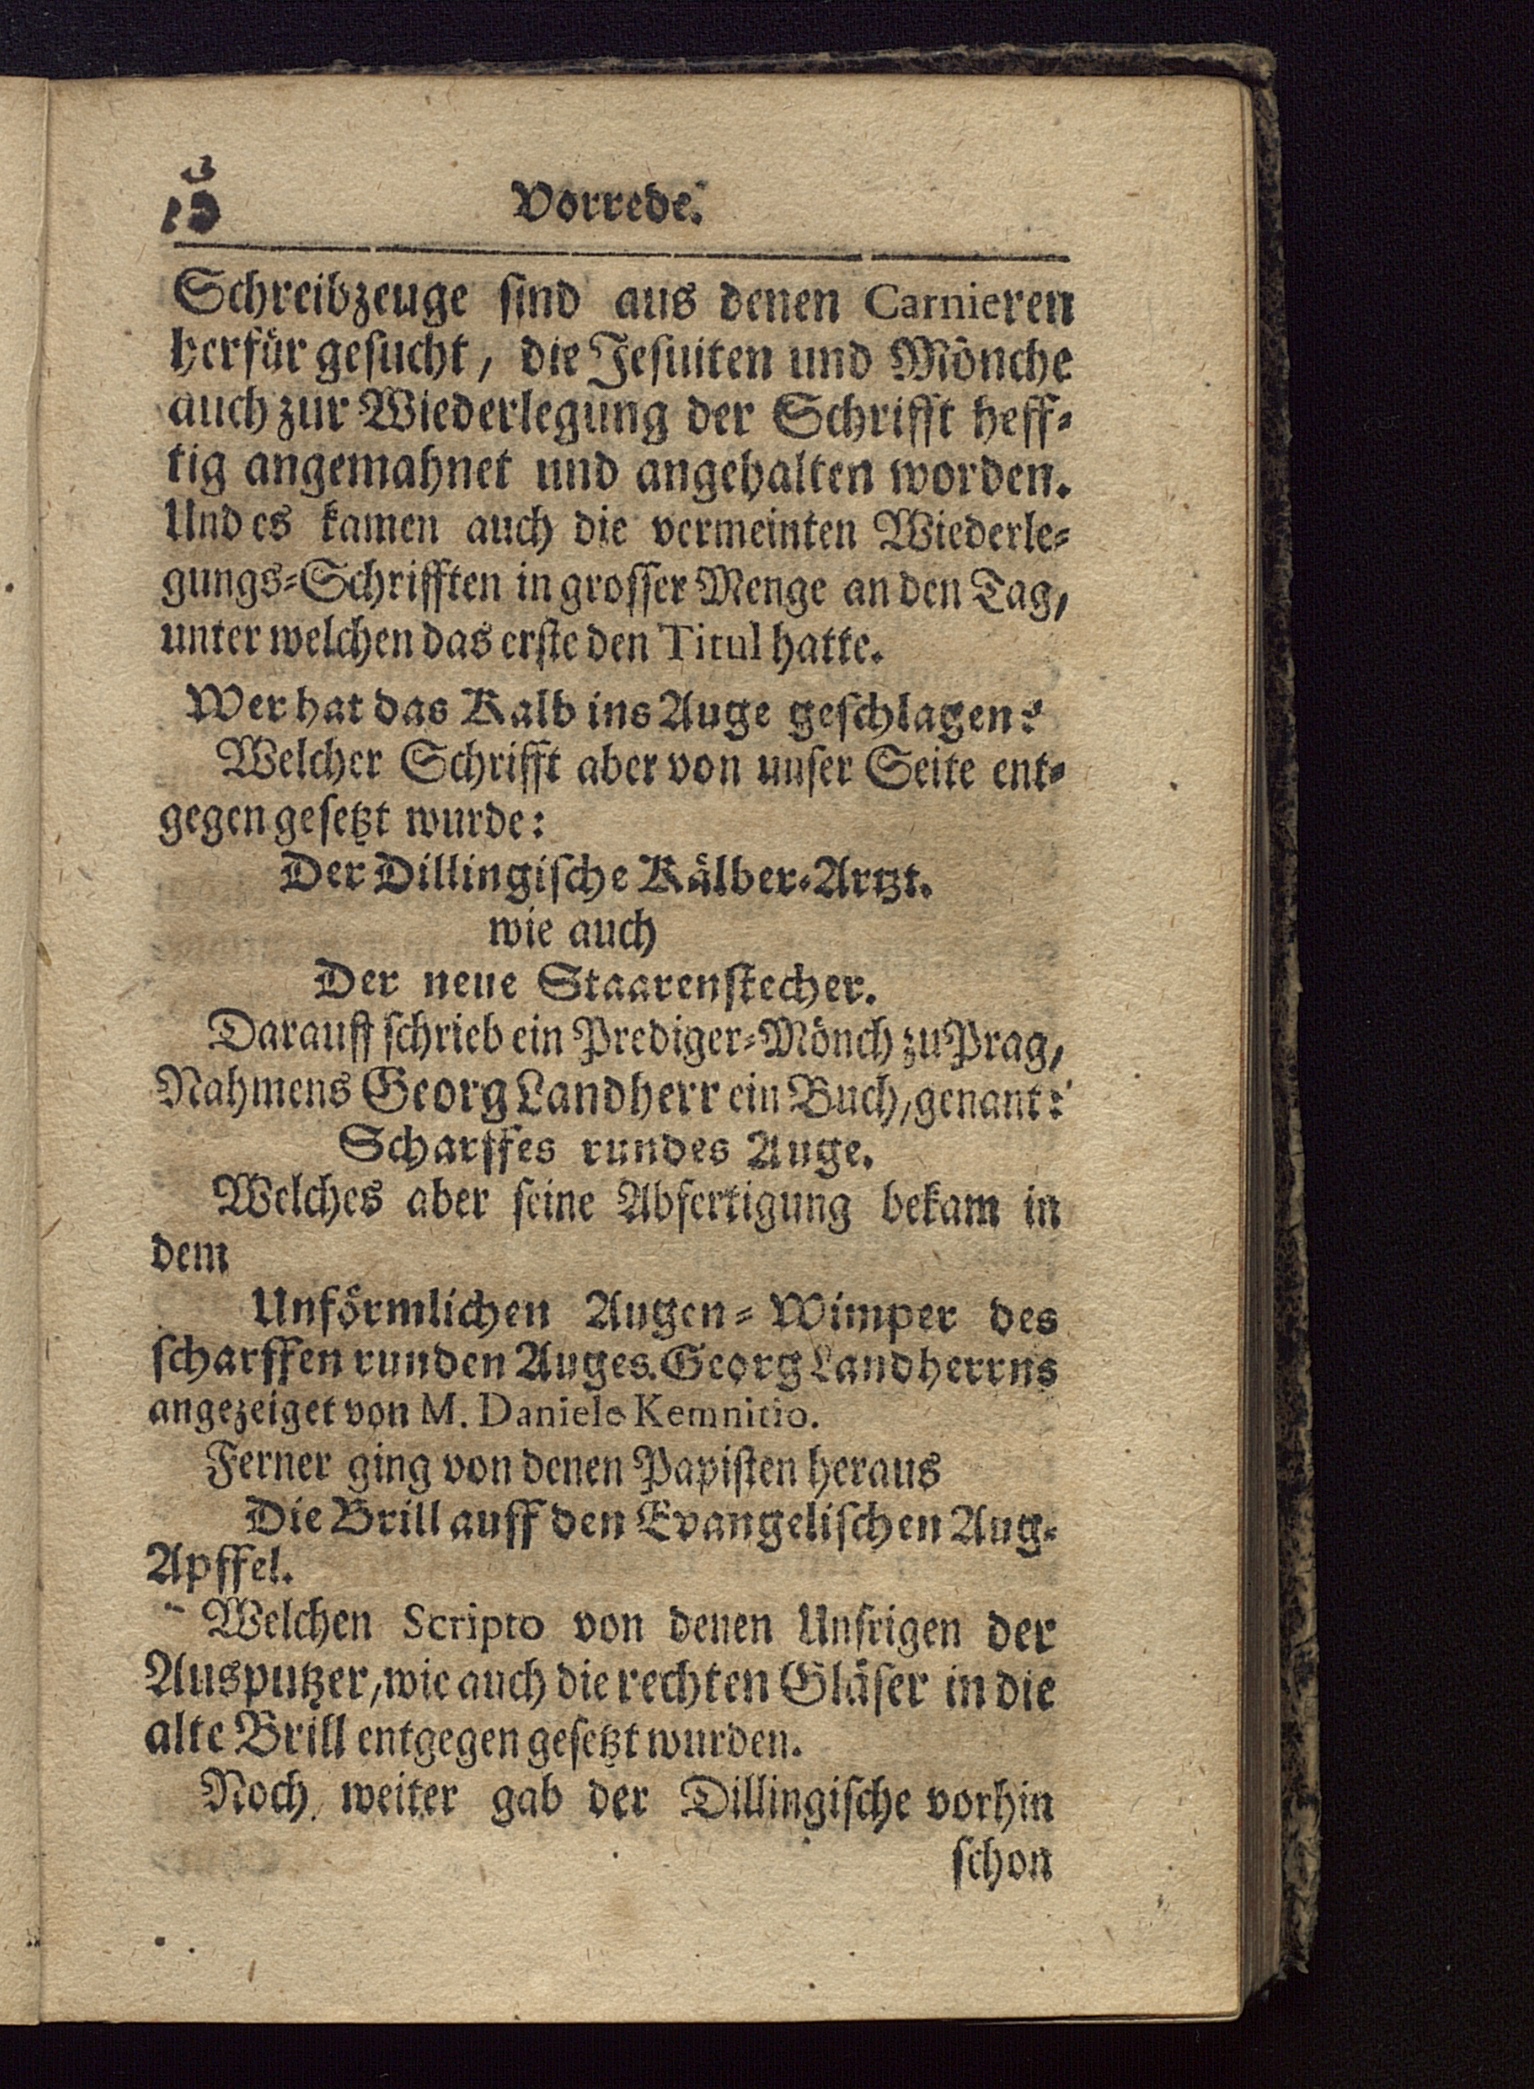 Vorrede.
Schreibzeuge sind aus denen Carnieren
herfür gesucht, die Jesuiten und Mönche
auch zur Wiederlegung der Schrifft heff-
tig angemahnet und angehalten worden.
Und es kamen auch die vermeinten Wiederle-
gungs-Schrifften in grosser Menge an den Tag,
unter welchen das erste den Titul hatte.
Wer hat das Kalb ins Auge geschlagen?
Welcher Schrifft aber von unser Seite ent-
gegen gesetzt wurde:
Der Dillingische Kälber-Artzt.
wie auch
Der neue Staarenstecher.
Darauff schrieb ein Prediger-Mönch zu Prag,
Nahmens Georg Landherr ein Buch, genant:
Scharffes rundes Auge.
Welches aber seine Abfertigung bekam in
dem
Unförmlichen Augen-Wimper des
scharffen runden Auges. Georg Landherrns
angezeiget von M. Daniele Kemnitio.
Ferner ging von denen Papisten heraus
Die Brill auff den Evangelischen Aug-
Apffel.
Welchen Scripto von denen Unsrigen der
Ausputzer, wie auch die rechten Gläser in die
alte Brill entgegen gesetzt wurden.
Noch weiter gab der Dillingische vorhin
schon